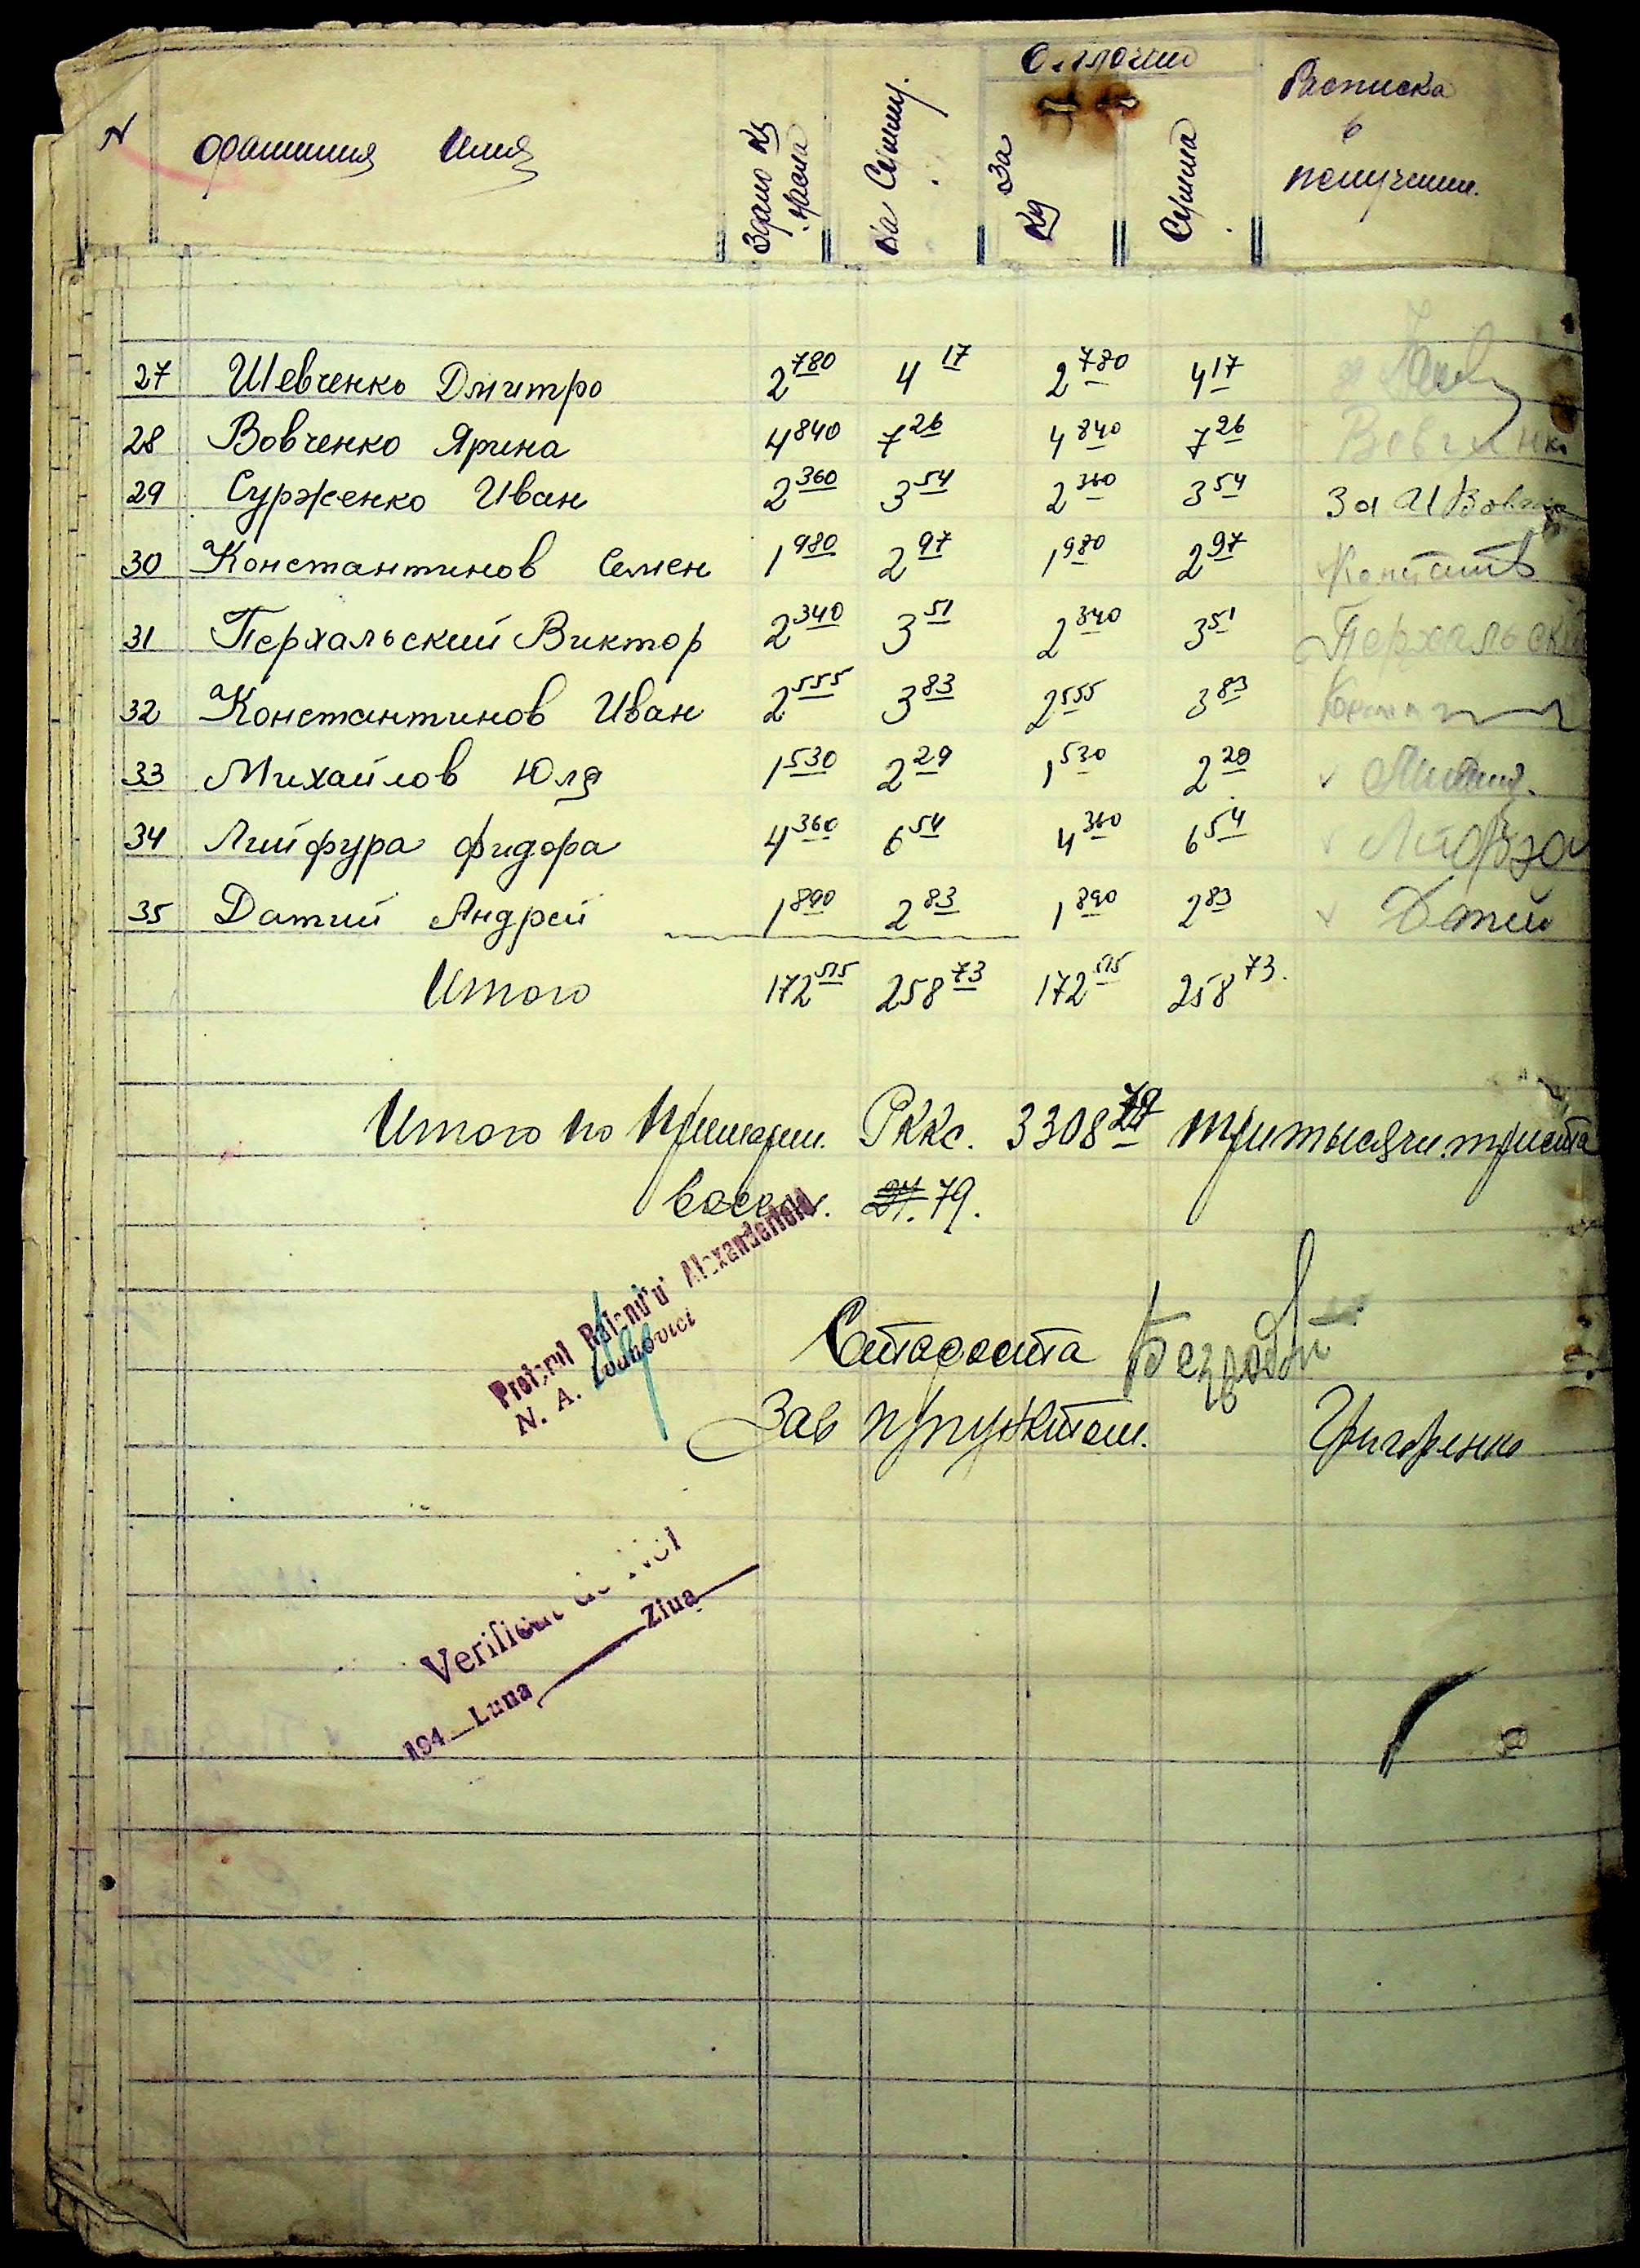 N фамилия Имя Здано кг масла На Сумму. Оплочено За кг Сумма Расписка в получении.
27 Шевченко Дмитро 2 780 4 17 2 780 4 17
28 Вовченко Ярина 4 840 7 26 4 840 7 26 Вовченко
29 Сурженко Иван 2 360 3 54 2 360 3 54 За И Вовченко
30 Константинов Семен 1 980 2 97 1 980 2 97
31 Перхальский Виктор 2 340 3 51 2 340 3 51 Перхальский
32 Константинов Иван 2 555 3 83 2 555 3 83
33 Михайлов Юля 1 530 2 29 1 530 2 29
34 Лийфура Фидора 4 360 6 54 4 360 6 54
35 Датий Андрей 1 890 2 83 1 890 2 83 Датий
Итого 172 515 258 73 172 515 258 73.
Итого по РККс. 3308 79 три тысячи триста
восем. 24. 79.
Pretorul Raionului Alexanderfeld
N. A.
Староста Безродний
Зав Григоренко
Verificat de Noi
194 Luna Ziua